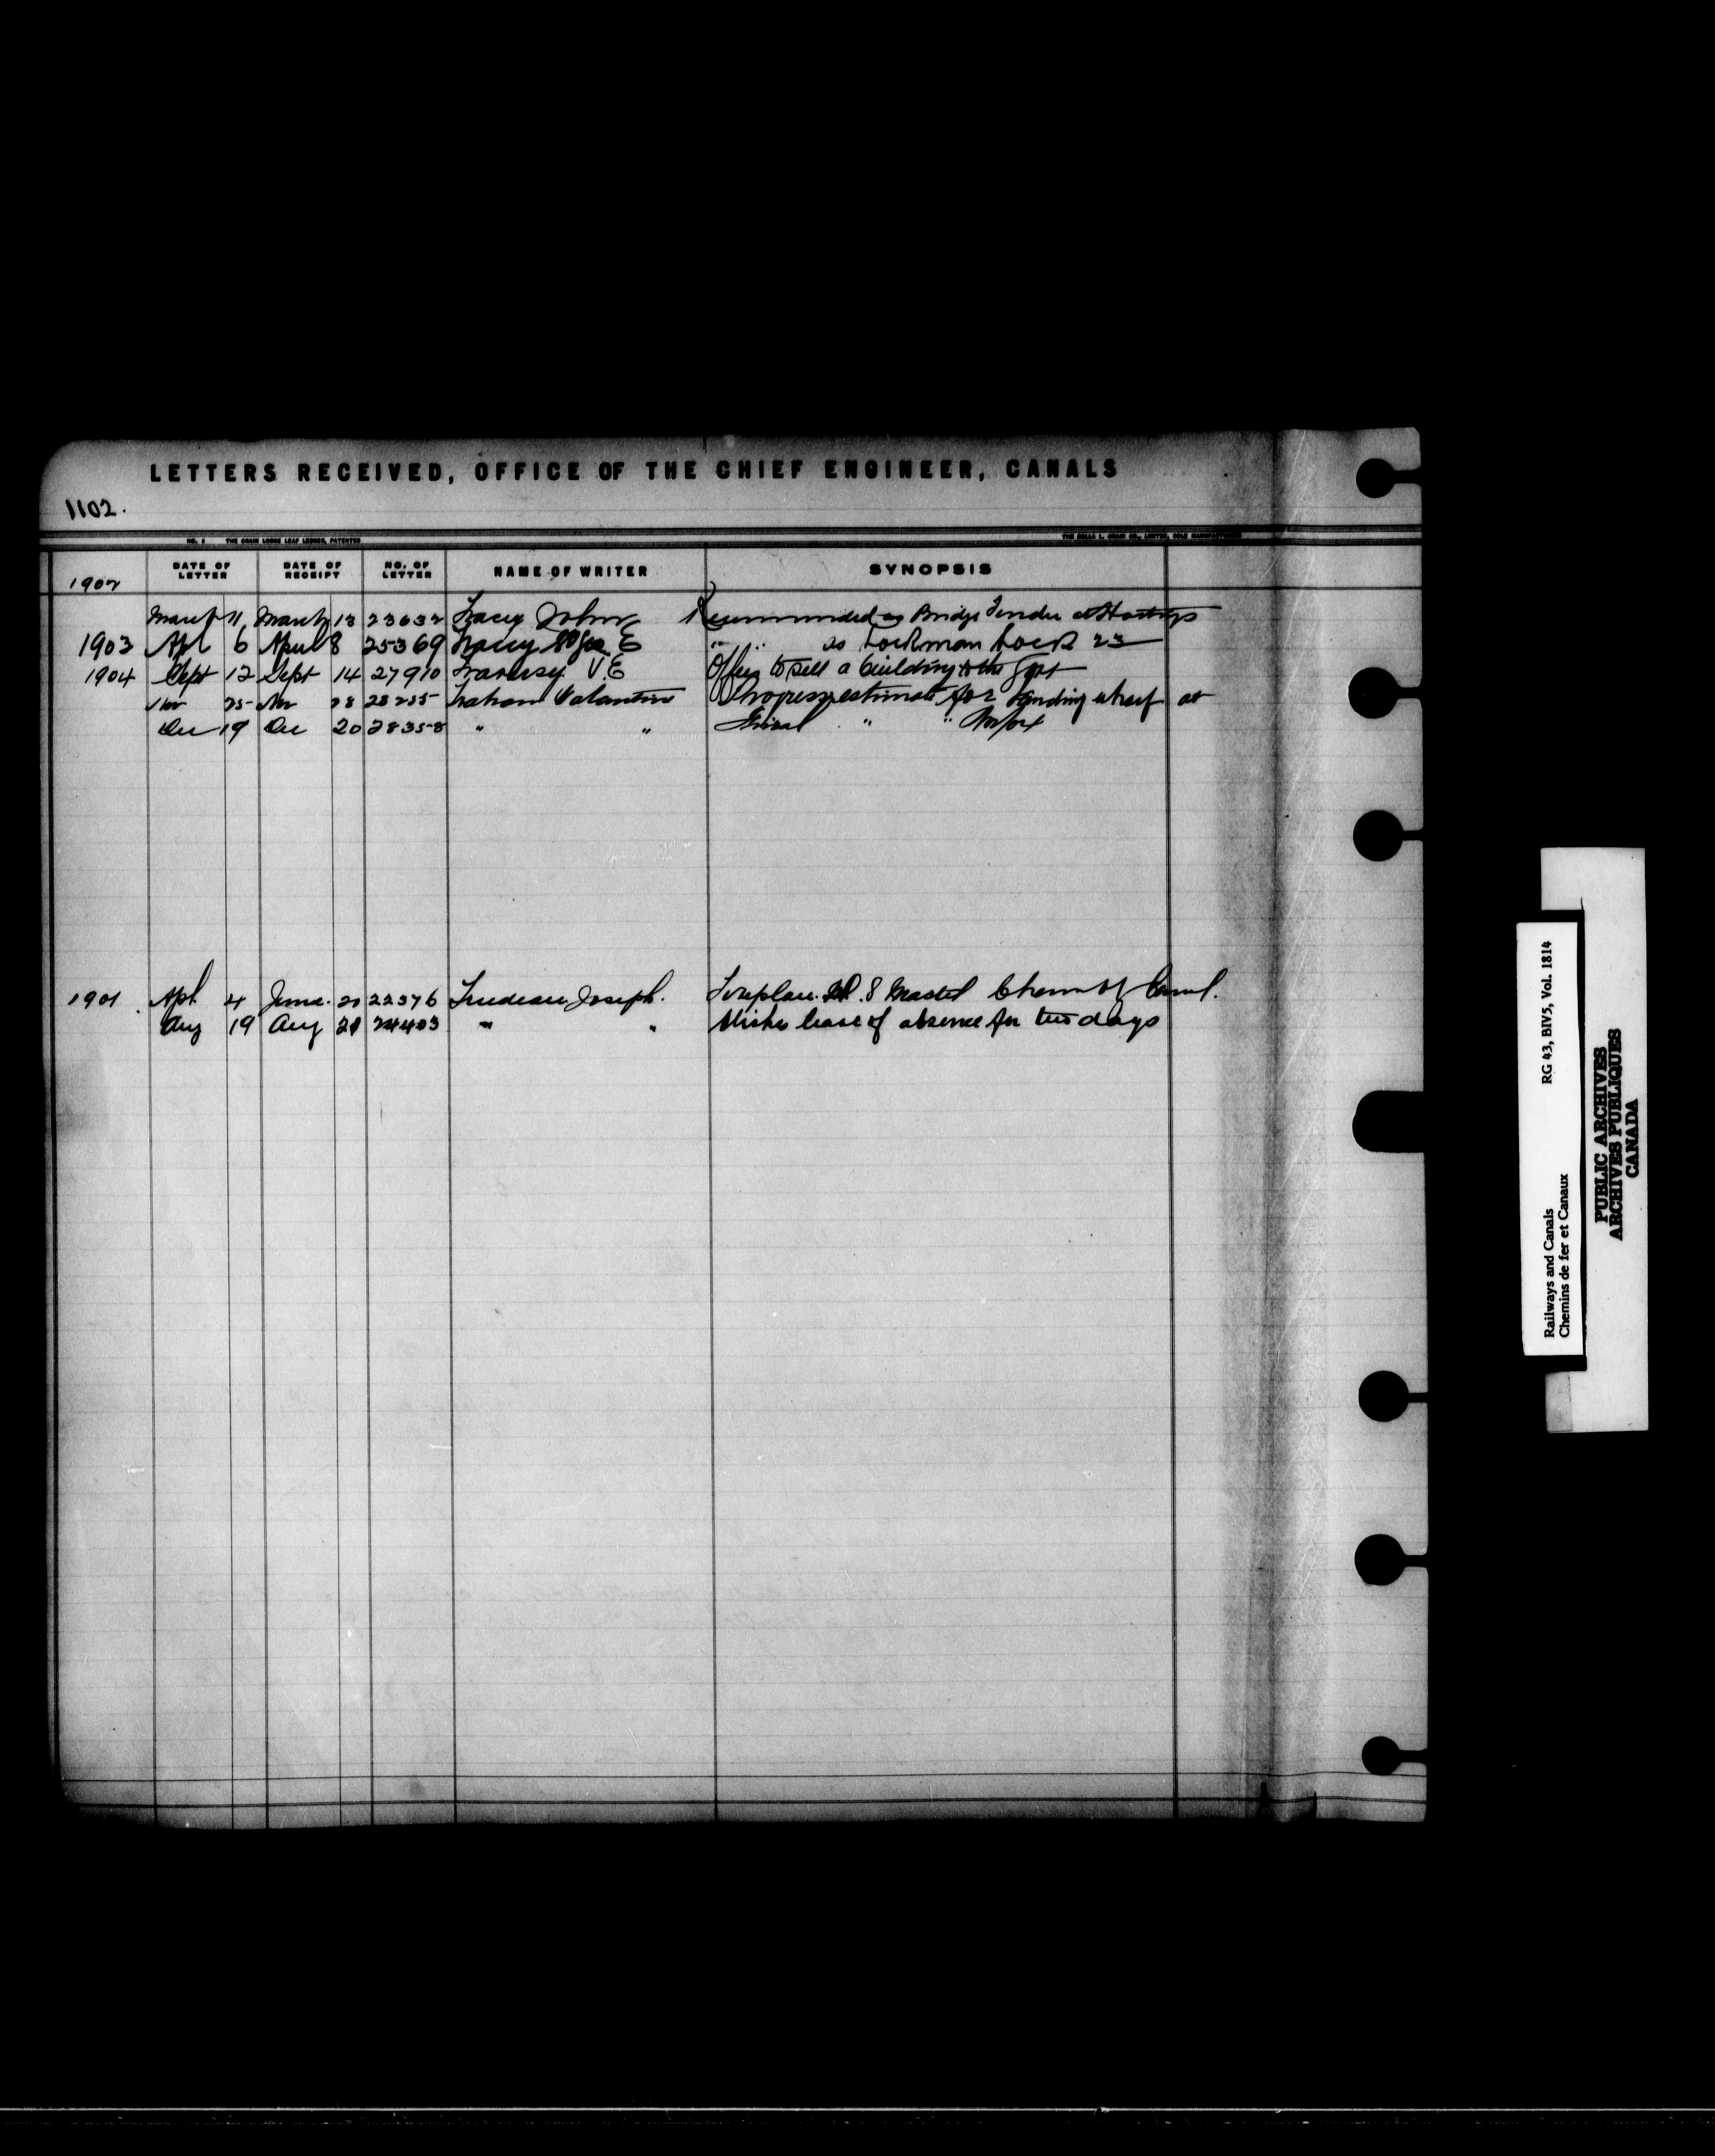 LETTERS RECEIVED, OFFICE OF THE CHIEF ENGINEER, CANALS
1102.
NO. 2 THE CRAIN LOOSE LEAF LEDGER, PATENTED
THE ROLLA L. CRAIN CO., LIMITED, SOLE MANUFACTURERS
1902 DATE OF LETTER DATE OF RECEIPT NO. OF LETTER NAME OF WRITER SYNOPSIS
March 11 March 13 23632 Tracey John Recommended as Bridge Tender at Hastings
1903 Apl 6 April 8 25369 Tracey E " " as Lockman Lock 23
1904 Sept 12 Sept 14 27910 Traversy V.E Offers to sell a building to the Govt
Nov 25 Nov 28 28255 Trahan Valantine Progress estimate for landing wharf at
Dec 19 Dec 20 28358 " " Final " "
1901 Apl 4 June 20 22376 Trudeau Joseph. 8 Canal.
Aug 19 Aug 21 24403 " " Wishes leave of absence for two days
RG 43, BIV5, Vol. 1814
Railways and Canals
Chemins de fer et Canaux
PUBLIC ARCHIVES
ARCHIVES PUBLIQUES
CANADA